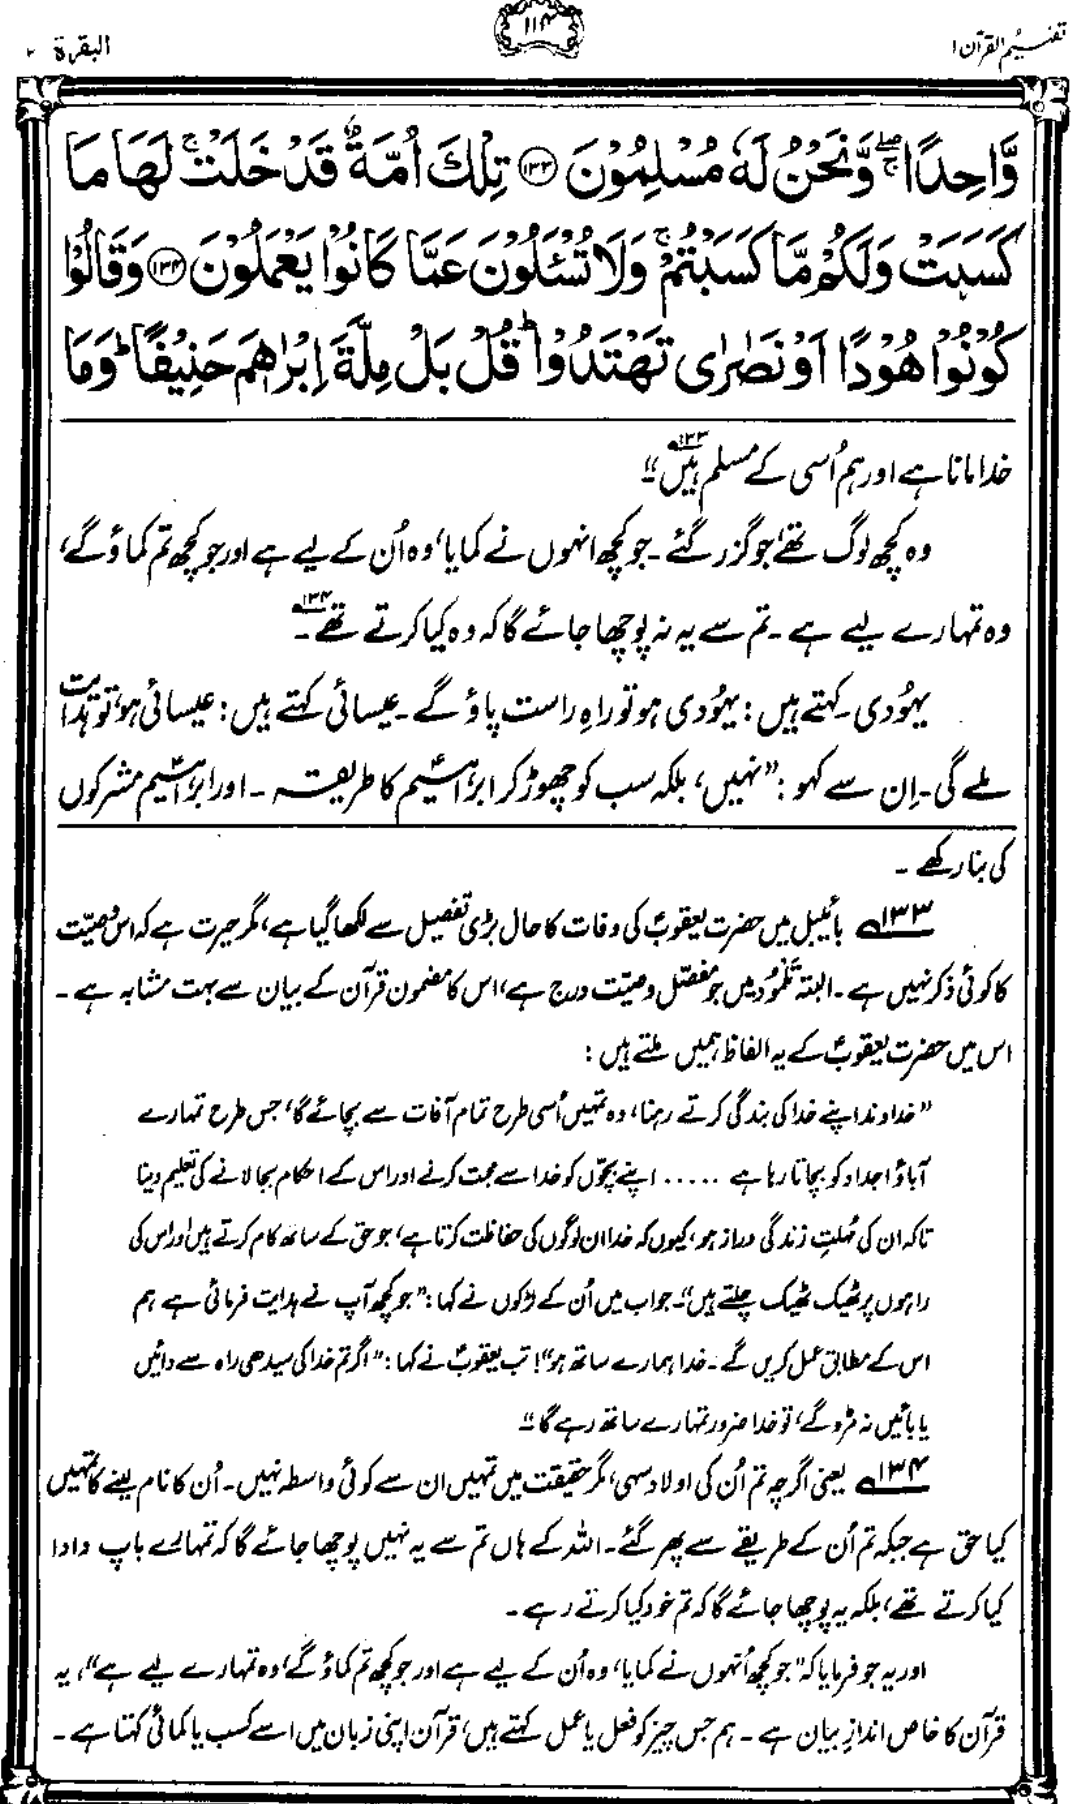 تفہیم القرآن ۱
۱۱۴
البقرۃ ۲
وَّاحِدًا ۖۚ وَّنَحْنُ لَهٗ مُسْلِمُوْنَ ﴿۱۳۳﴾ تِلْكَ اُمَّةٌ قَدْ خَلَتْ ۚ لَهَا مَا
كَسَبَتْ وَلَكُمْ مَّا كَسَبْتُمْ ۚ وَلَا تُسْـَٔلُوْنَ عَمَّا كَانُوْا يَعْمَلُوْنَ ﴿۱۳۴﴾ وَقَالُوْا
كُوْنُوْا هُوْدًا اَوْ نَصٰرٰى تَهْتَدُوْا ؕ قُلْ بَلْ مِلَّةَ اِبْرٰهٖمَ حَنِيْفًا ؕ وَمَا
خدا مانا ہے اور ہم اُسی کے مسلم ہیں۱۳۳“
وہ کچھ لوگ تھے، جو گزر گئے۔ جو کچھ انہوں نے کمایا، وہ اُن کے لیے ہے اور جو کچھ تم کماؤ گے،
وہ تمہارے لیے ہے۔ تم سے یہ نہ پوچھا جائے گا کہ وہ کیا کرتے تھے۱۳۴۔
یہُودی کہتے ہیں: یہُودی ہو تو راہِ راست پاؤ گے۔ عیسائی کہتے ہیں: عیسائی ہو، تو ہدایت
ملے گی۔ اِن سے کہو: ”نہیں، بلکہ سب کو چھوڑ کر ابراہیمؑ کا طریقہ۔ اور ابراہیمؑ مشرکوں
کی بنا رکھے۔
۱۳۳؎ بائیبل میں حضرت یعقوبؑ کی وفات کا حال بڑی تفصیل سے لکھا گیا ہے، مگر حیرت ہے کہ اس وصیّت
کا کوئی ذکر نہیں ہے۔ البتہ تَلْمُود میں جو مفصّل وصیّت درج ہے، اس کا مضمون قرآن کے بیان سے بہت مشابہ ہے۔
اس میں حضرت یعقوبؑ کے یہ الفاظ ہمیں ملتے ہیں:
”خداوند اپنے خدا کی بندگی کرتے رہنا، وہ تمہیں اُسی طرح تمام آفات سے بچائے گا، جس طرح تمہارے
آباؤ اجداد کو بچاتا رہا ہے ..... اپنے بچّوں کو خدا سے محبت کرنے اور اس کے احکام بجا لانے کی تعلیم دینا
تاکہ ان کی مُہلتِ زندگی دراز ہو، کیوں کہ خدا ان لوگوں کی حفاظت کرتا ہے، جو حق کے ساتھ کام کرتے ہیں اور اس کی
راہوں پر ٹھیک ٹھیک چلتے ہیں“۔ جواب میں اُن کے لڑکوں نے کہا: ”جو کچھ آپ نے ہدایت فرمائی ہے ہم
اس کے مطابق عمل کریں گے۔ خدا ہمارے ساتھ ہو“! تب یعقوبؑ نے کہا: ”اگر تم خدا کی سیدھی راہ سے دائیں
یا بائیں نہ مُڑو گے، تو خدا ضرور تمہارے ساتھ رہے گا“
۱۳۴؎ یعنی اگرچہ تم اُن کی اولاد سہی، مگر حقیقت میں تمہیں ان سے کوئی واسطہ نہیں۔ اُن کا نام لینے کا تمہیں
کیا حق ہے جبکہ تم اُن کے طریقے سے پھر گئے۔ اللہ کے ہاں تم سے یہ نہیں پوچھا جائے گا کہ تمہارے باپ دادا
کیا کرتے تھے، بلکہ یہ پوچھا جائے گا کہ تم خود کیا کرتے رہے۔
اور یہ جو فرمایا کہ ”جو کچھ اُنہوں نے کمایا، وہ اُن کے لیے ہے اور جو کچھ تم کماؤ گے، وہ تمہارے لیے ہے“، یہ
قرآن کا خاص اندازِ بیان ہے۔ ہم جس چیز کو فعل یا عمل کہتے ہیں، قرآن اپنی زبان میں اسے کسب یا کمائی کہتا ہے۔